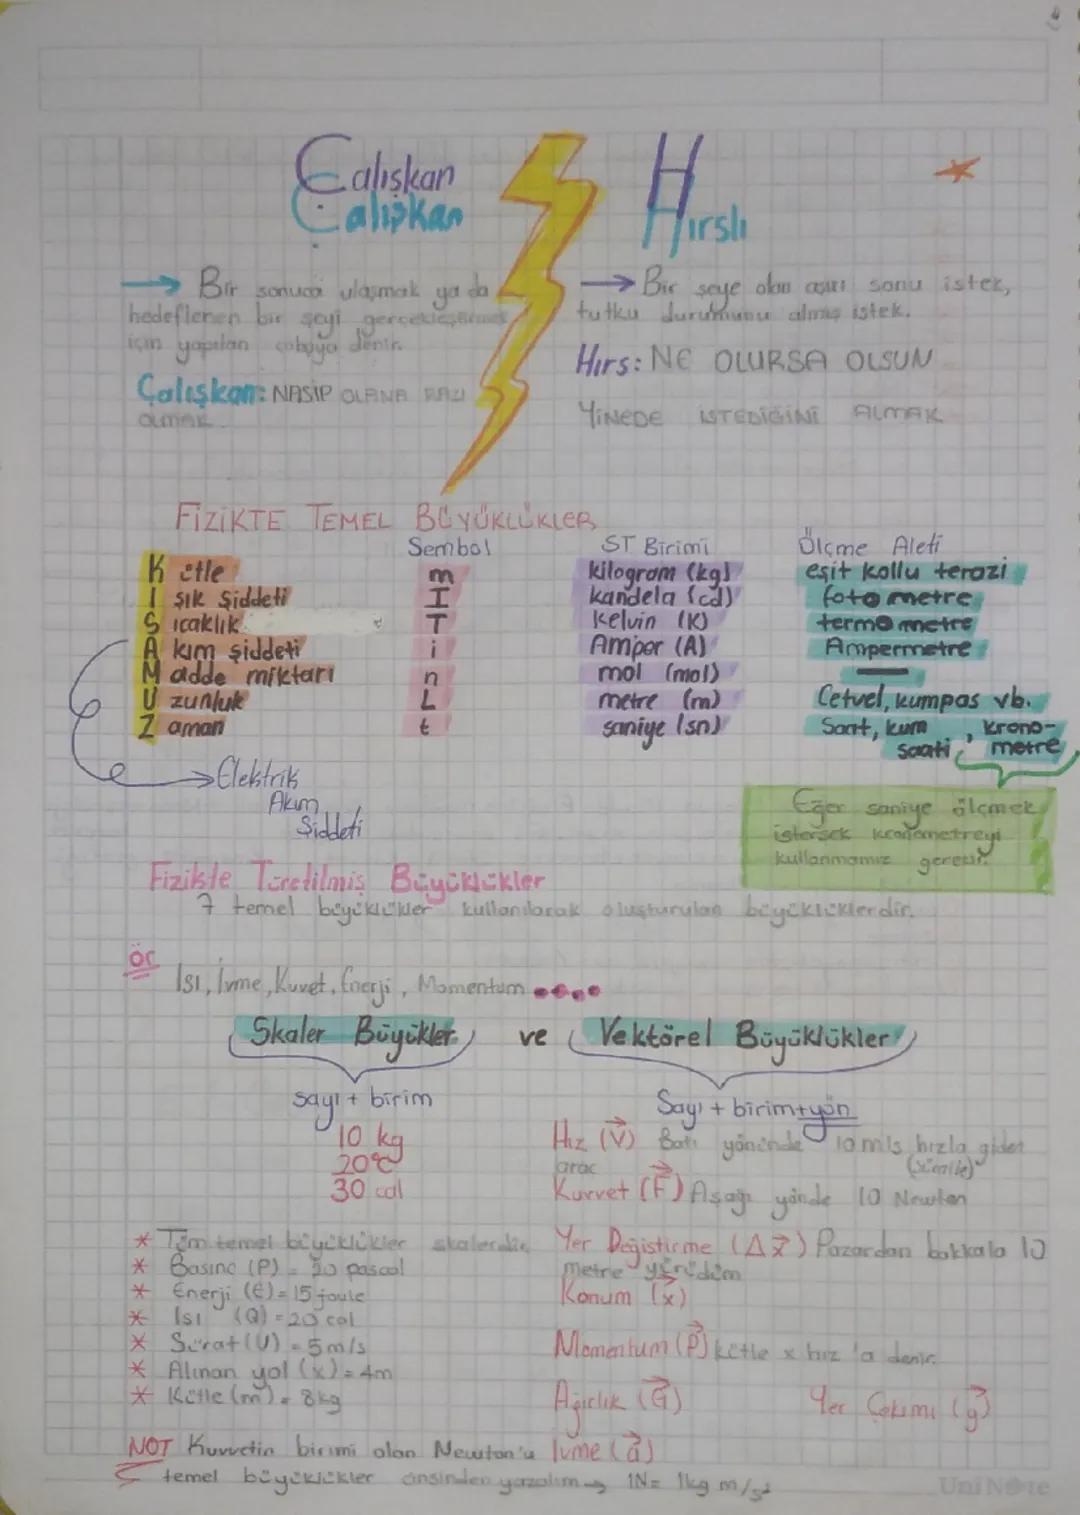 Çalışkan
Çalışkan
Hırslı
→ Bir sonuca ulaşmak ya da
hedeflenen bir şeyi gerçekleştirmek
için yapılan çabaya denir.
Çalışkan: NASİP OLANA RAZI
OLMAK
→ Bir şeye olan aşırı sonu istek,
tutku durumunu almış istek.
Hırs: NE OLURSA OLSUN
YİNEDE İSTEDİĞİNİ ALMAK
FİZİKTE TEMEL BÜYÜKLÜKLER
Sembol ST Birimi Ölçme Aleti
Kütle m kilogram (kg) eşit kollu terazi
Işık Şiddeti I kandela (cd) fotometre
Sıcaklık T Kelvin (K) termometre
Akım şiddeti i Amper (A) Ampermetre
Madde miktarı n mol (mol) —
Uzunluk L metre (m) Cetvel, kumpas vb.
Zaman t saniye (sn) Saat, kum saati, krono-
metre
→ Elektrik
Akım
Şiddeti
Eğer saniye ölçmek
istersek kronometreyi
kullanmamız gerekir.
Fizikte Türetilmiş Büyüklükler
7 temel büyüklükler kullanılarak oluşturulan büyüklüklerdir.
ör
Isı, İvme, Kuvet, Enerji, Momentum ....
Skaler Büyükler ve Vektörel Büyüklükler
sayı + birim
10 kg
20°C
30 cal
Sayı + birim+yön
Hız (V→) Batı yönünde 10 m/s hızla giden
araç
Kuvvet (F→) Aşağı yönde 10 Newton
Yer Değiştirme (Δx→) Pazardan bakkala 10
metre yürüdüm
Konum (x→)
Momentum (P→) kütle x hız 'a denir.
Ağırlık (G→) Yer Çekimi (g→)
İvme (a→)
* Tüm temel büyüklükler skalerdir.
* Basınç (P) = 20 pascal
* Enerji (E) = 15 joule
* Isı (Q) = 20 cal
* Sürat (U) = 5 m/s
* Alınan yol (x) = 4m
* Kütle (m) = 8kg
NOT Kuvvetin birimi olan Newton'u
temel büyüklükler cinsinden yazalım → 1N = 1kg m/s²
UniNote